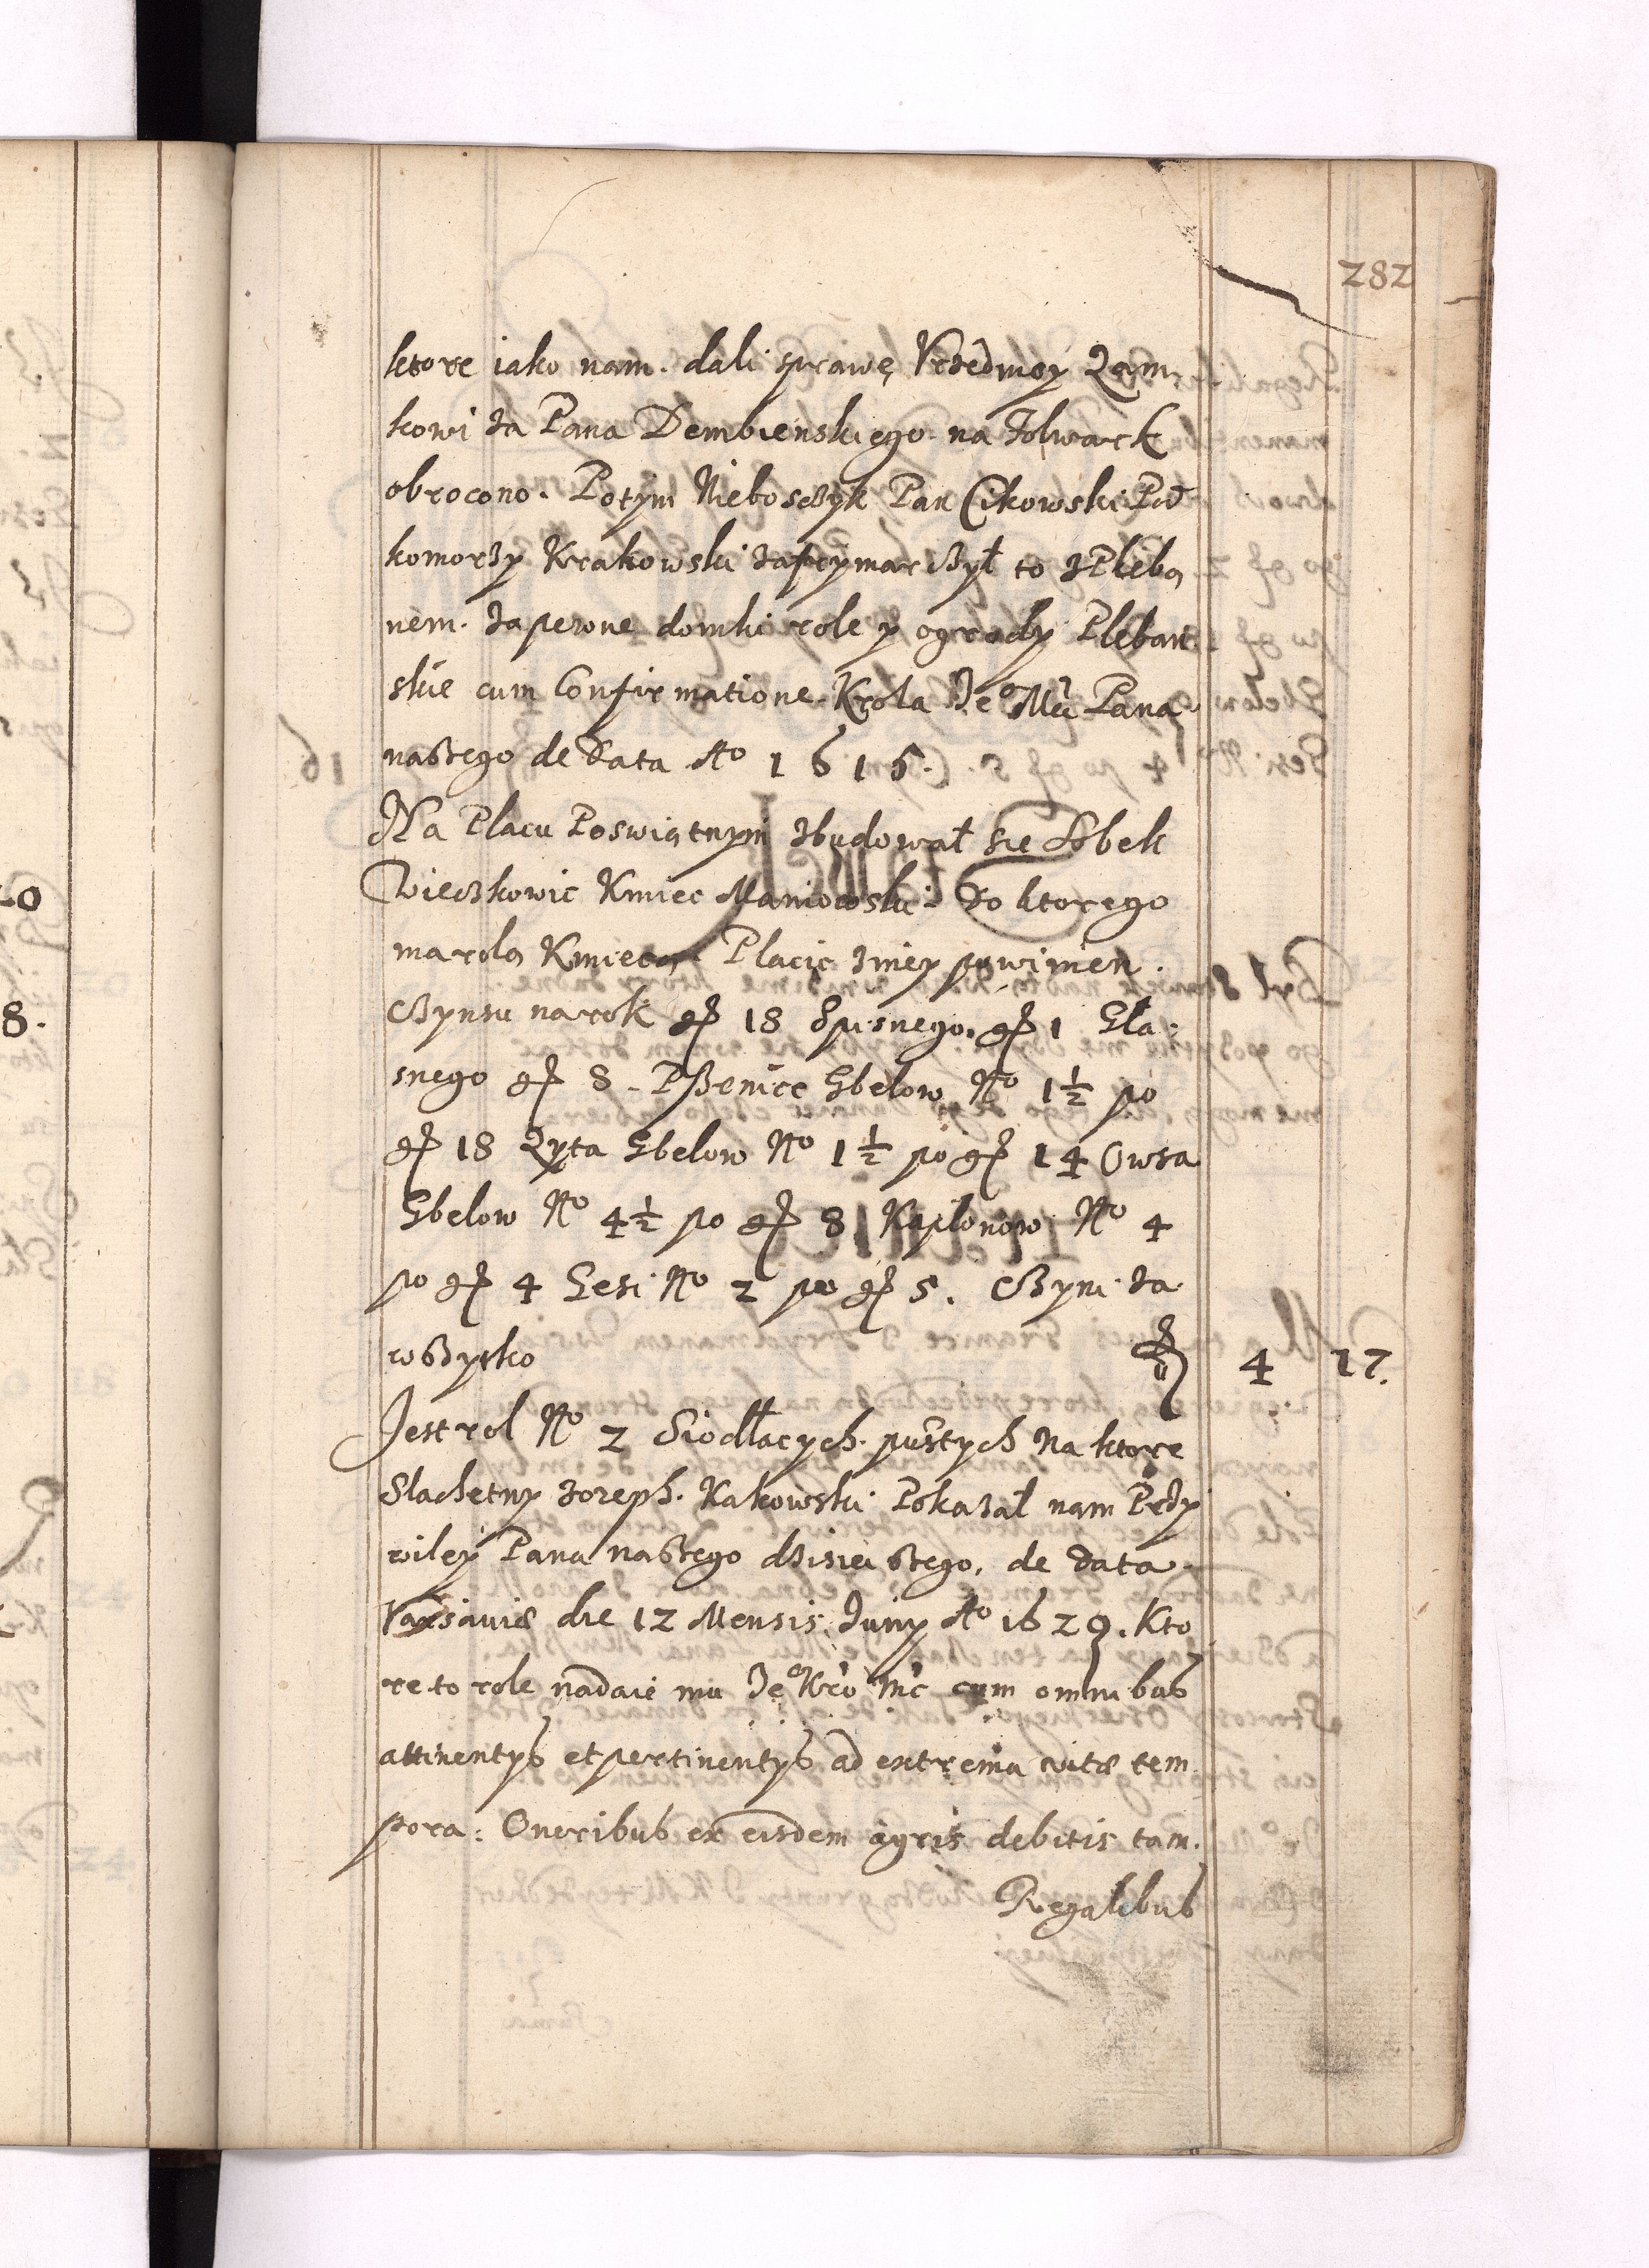 282
ktore iako nam. dali sprawę Vrzednicy Zam
kowi za Pana Dembienskiego. na Folwark
obrocono. Potym Nieboszczyk Pan Cikowski Pod
komorzy Krakowski zafrymarczył to z Pleba
nem. za pewne domki role y ogrody Pleban
skie cum Confirmatione Krola Jeº Mći Pana
naszego de Data Aº 1615.
Na Placu Poswiątnym zbudował sie Sobek
Twieczkowic Kmiec Maniowski. Do ktorego
ma rolą Kmiecą. Placic z niey powinien.
Czynszu na rok gr 18 Spisnego. gr 1 Sta:
snego gr 8. Pszenice Gbelow Nº 1½ po
gr 18 Zyta Gbelow Nº 1½ po gr 14 Owsa
Gbelow Nº 4½ po gr 8 Kaplonow Nº 4
po gr 4 Gesi Nº 2 po gr 5. Czyni za
wszytko fl 4 17.
Jest rol Nº 2 Siodłacych pustych Na ktore
Slachetny Jozeph. Kakowski Pokazał nam Przy
wiley Pana naszego dzisieszego. de data
Varsaviæ die 12 Mensis Juny Aº 1629. Kto
re to role nadaie mu Jeº Kro Mć cum omnibus
attinentys et pertinentys ad extrema vitæ tem
pora: Oneribus ex eisdem agris debitis tam.
Regalibus